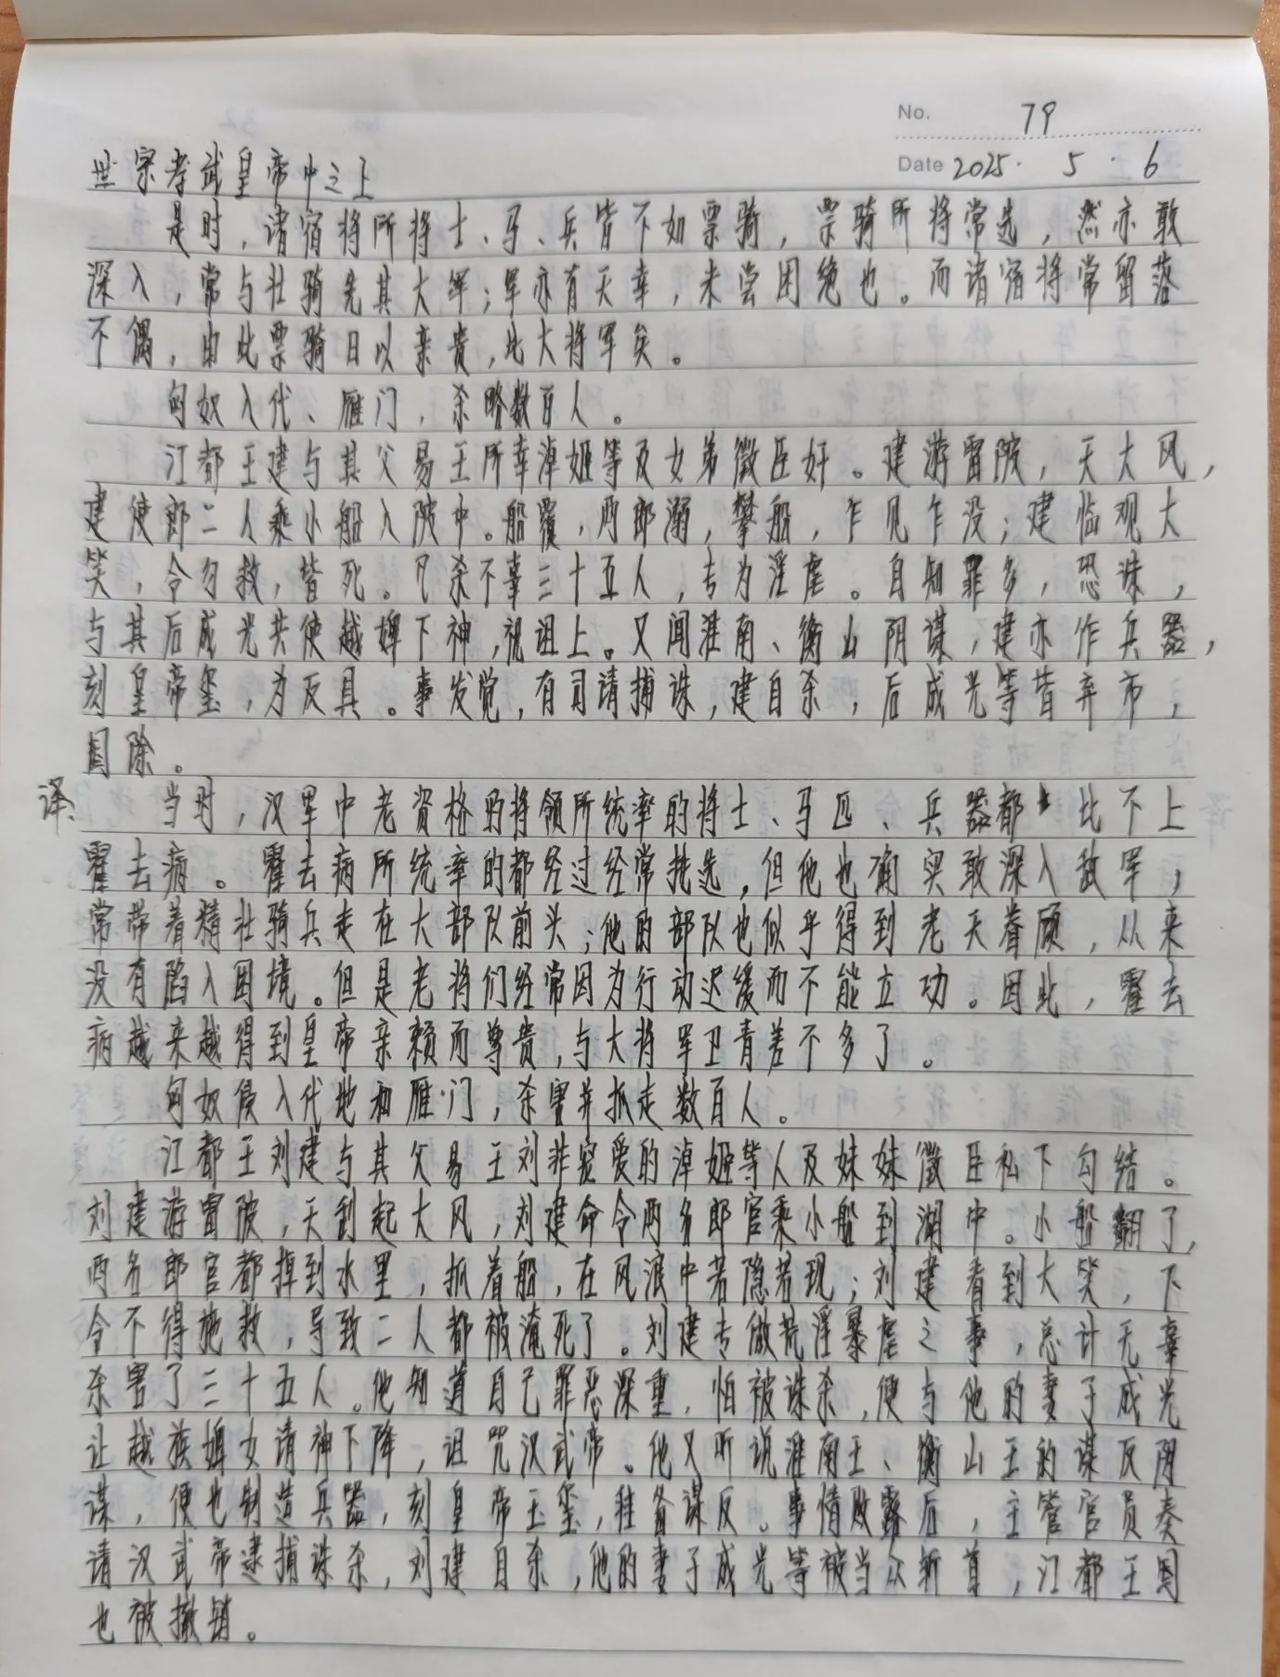 No. 79
Date 2025. 5. 6
世宗孝武皇帝中之上
是时，诸宿将所将士、马、兵皆不如票骑，票骑所将常选，然亦敢
深入，常与壮骑先其大军；军亦有天幸，未尝困绝也。而诸宿将常留落
不偶，由此票骑日以亲贵，比大将军矣。
匈奴入代、雁门，杀略数百人。
江都王建与其父易王所幸淖姬等及女弟徵臣奸。建游雷陂，天大风，
建使郎二人乘小船入陂中。船覆，两郎溺，攀船，乍见乍没；建临观大
笑，令勿救，皆死。凡杀不辜三十五人，专为淫虐。自知罪多，恐诛，
与其后成光共使越婢下神，祝诅上。又闻淮南、衡山阴谋，建亦作兵器，
刻皇帝玺，为反具。事发觉，有司请捕诛，建自杀，后成光等皆弃市，
国除。
译: 当时，汉军中老资格的将领所统率的将士、马匹、兵器都比不上
霍去病。霍去病所统率的都经过经常挑选，但他也确实敢深入敌军，
常带着精壮骑兵走在大部队前头；他的部队也似乎得到老天眷顾，从来
没有陷入困境。但是老将们经常因为行动迟缓而不能立功。因此，霍去
病越来越得到皇帝亲赖而尊贵，与大将军卫青差不多了。
匈奴侵入代地和雁门，杀害并抓走数百人。
江都王刘建与其父易王刘非宠爱的淖姬等人及妹妹徵臣私下勾结。
刘建游雷陂，天刮起大风，刘建命令两名郎官乘小船到湖中。小船翻了，
两名郎官都掉到水里，抓着船，在风浪中若隐若现；刘建看到大笑，下
令不得施救，导致二人都被淹死了。刘建专做荒淫暴虐之事，总计无辜
杀害了三十五人。他知道自己罪恶深重，怕被诛杀，便与他的妻子成光
让越族婢女请神下降，诅咒汉武帝。他又听说淮南王、衡山王的谋反阴
谋，便也制造兵器，刻皇帝玉玺，准备谋反。事情败露后，主管官员奏
请汉武帝逮捕诛杀，刘建自杀，他的妻子成光等被当众斩首，江都王国
也被撤销。